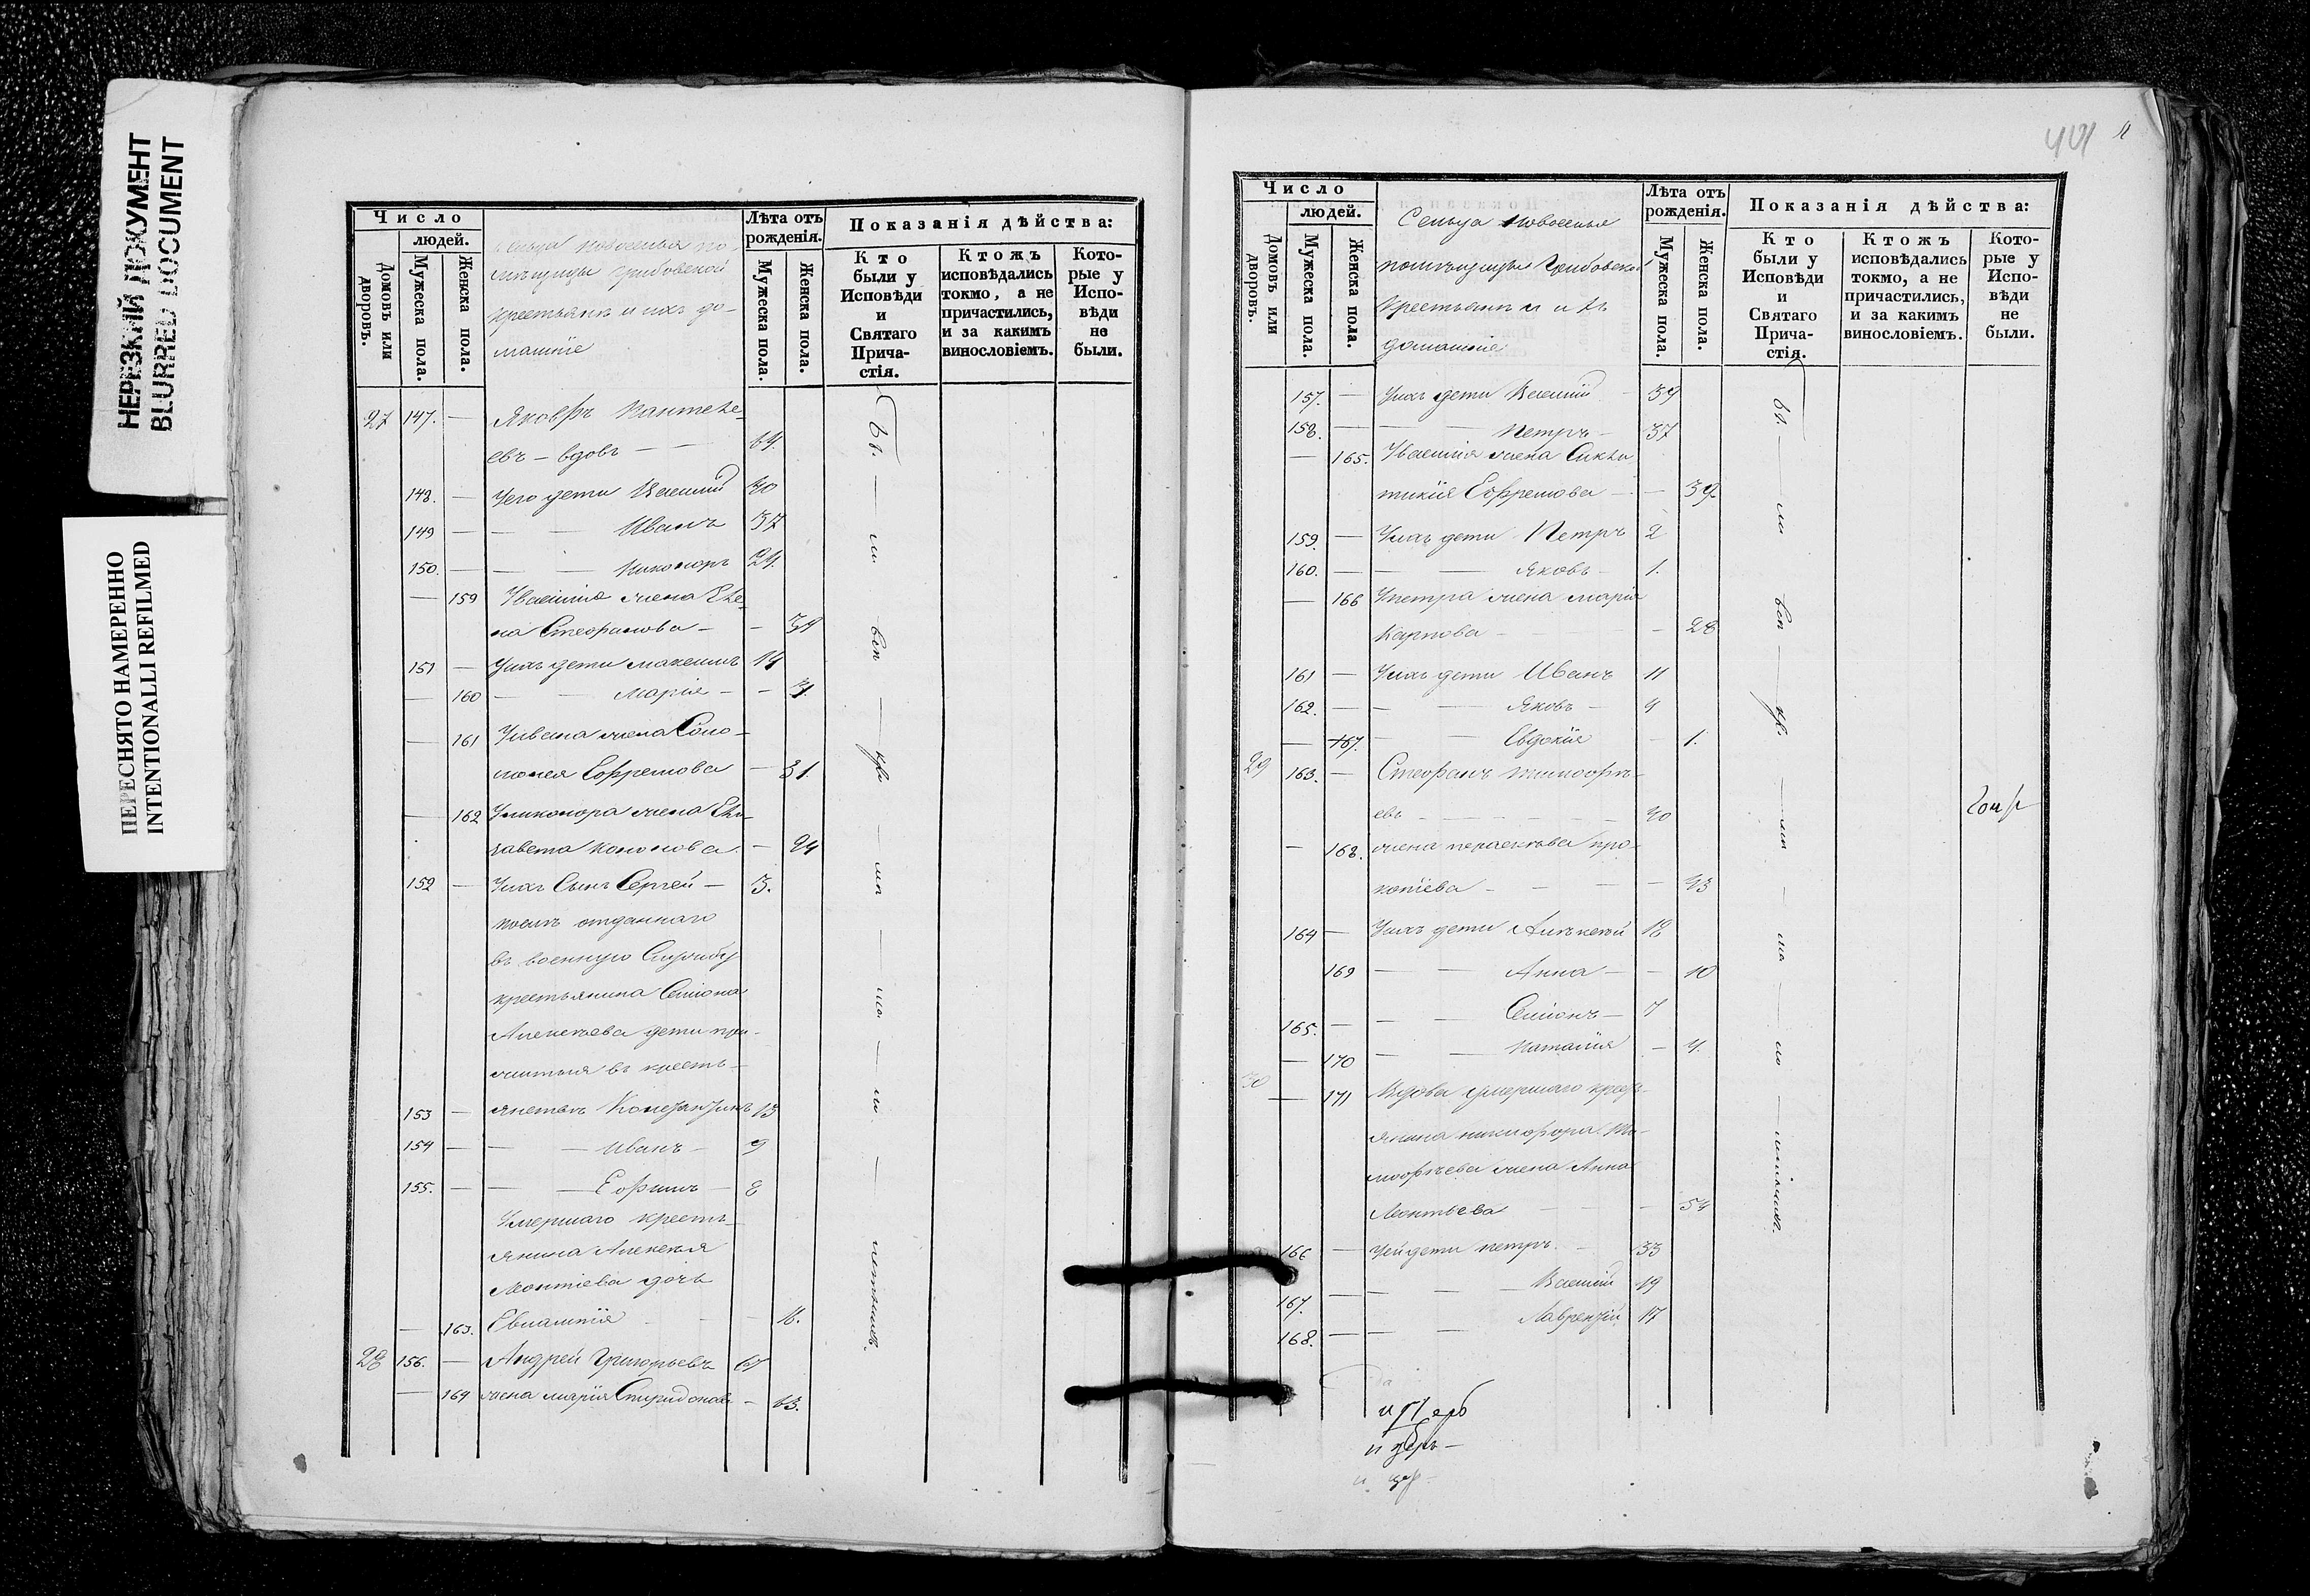 НЕРЕЗКИЙ ДОКУМЕНТ
BLURRED DOCUMENT
ПЕРЕСНЯТО НАМЕРЕННО
INTENTIONALLI REFILMED
Число
людей.
Домовъ или дворовъ.
Мужеска пола.
Женска пола.
Сельца Новоселья по-
мѣщицы Грибовской
крестьянъ и ихъ до-
машніе
Лѣта отъ
рожденія.
Мужеска пола.
Женска пола.
Показанія дѣйства:
Кто
были у
Исповѣди
и
Святаго
Прича-
стія.
Ктожъ
исповѣдались
токмо, а не
причастились,
и за какимъ
винословіемъ.
Кото-
рые у
Испо-
вѣди
не
были.
27 147. — Яковъ Пантеле-
евъ — вдовъ — 64.
148. — Уего дети Василий 40
149 — — — Иванъ 37
150. — — — Никоноръ 24.
— 159 Увасилия жена Еле-
на Стефанова — — 39
151 — Уихъ дети Максимъ 14
— 160 — — Марія — — 3.
— 161 Уивана жена Соло-
монея Ефремова — 31.
— 162 Униконора жена Ели-
завета Кононова — 24
152 — Уихъ Сынъ Сергей — 3.
отданнаго
въ военную Службу
крестьянина Симіона
Алексеева дети при-
въ кресть-
153 — янствъ 13
154 — — — Иванъ — 9
155. — — — Ефимъ — 8
Умершаго кресть-
янина Алексея
Леонтіева дочь
— 163. — — 16.
28 156. — Андрей Григорьевъ 67
— 164 жена марія Спиридонова — 63.
441
Число
людей.
Домовъ или дворовъ.
Мужеска пола.
Женска пола.
Сельца Новоселья
помѣщицы Грибовской
Крестьянъ и ихъ
домашніе
Лѣта отъ
рожденія.
Мужеска пола.
Женска пола.
Показанія дѣйства:
Кто
были у
Исповѣди
и
Святаго
Прича-
стія.
Ктожъ
исповѣдались
токмо, а не
причастились,
и за какимъ
винословіемъ.
Кото-
рые у
Испо-
вѣди
не
были.
157. — Уихъ дети Василий — 39
158. — — — Петръ — 37
— 165. Увасилия жена
Ефремова — — 39.
159. — Уихъ дети Петръ 2
160. — — — Яковъ — 1.
— 166 Упетра жена марія
Карпова — — 28
161 — Уихъ дети Иванъ 11
162. — — — Яковъ — 9
— 167. — — Евдокія — 1.
29 163. — Стефанъ Никифоръ-
евъ — — 40
— 168. жена параскева про-
копіева — — 43
164 — Уихъ дети Алексей 18
169 — — Анна — — 10
165. — — — Симіонъ — 7
— 170 — — Наталія — 4.
30 — 171 Вдова умершаго крестъ-
янина никифора Ти-
мофѣева жена Анна
Леонтьева — — 54
166 — Уей дети петръ — 33
167. — — — Василий 19
168. — — — Лаврентій 17